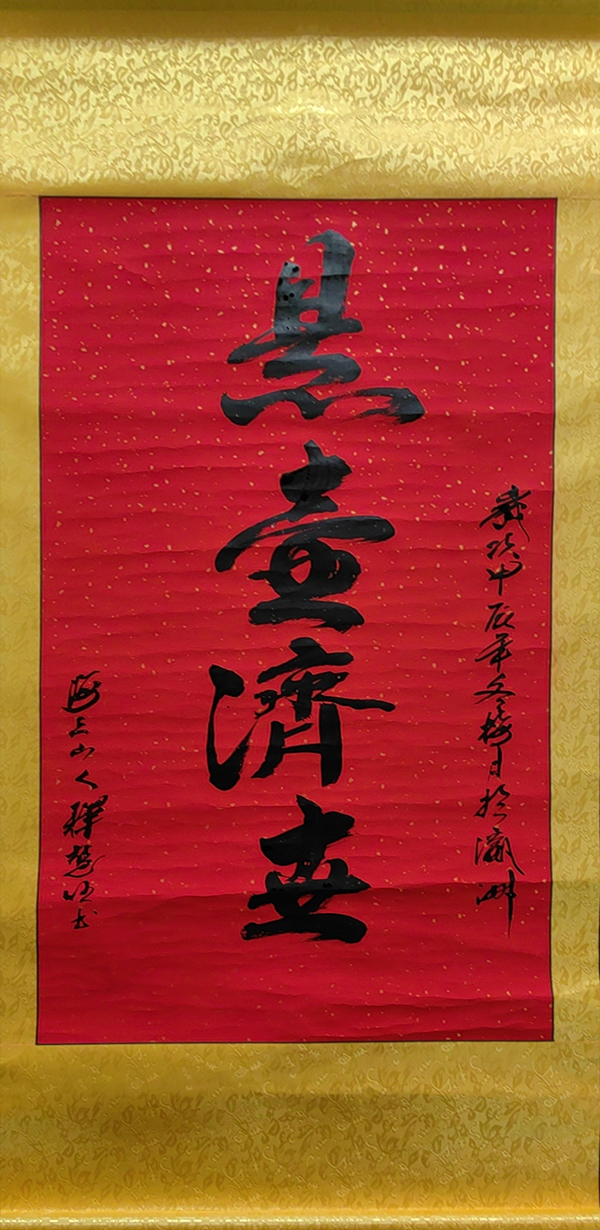 歲次甲辰年冬梅月於瀛洲
悬壺濟世
海上山人釋慧书